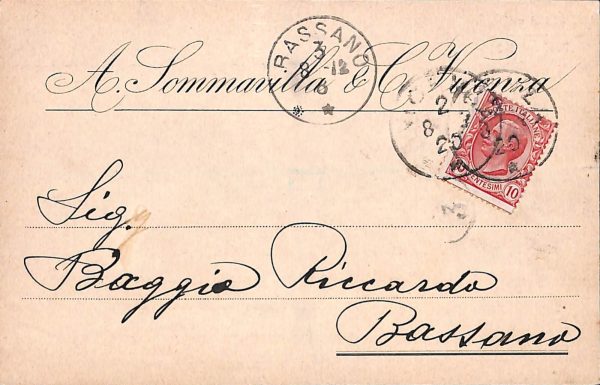 BASSANO
3
8 -12
8
A. Sommavilla & C. Vicenza
2
8
20
POSTE ITALIANE
CENTESIMI 10
Sig.
Baggio Riccardo
Bassano